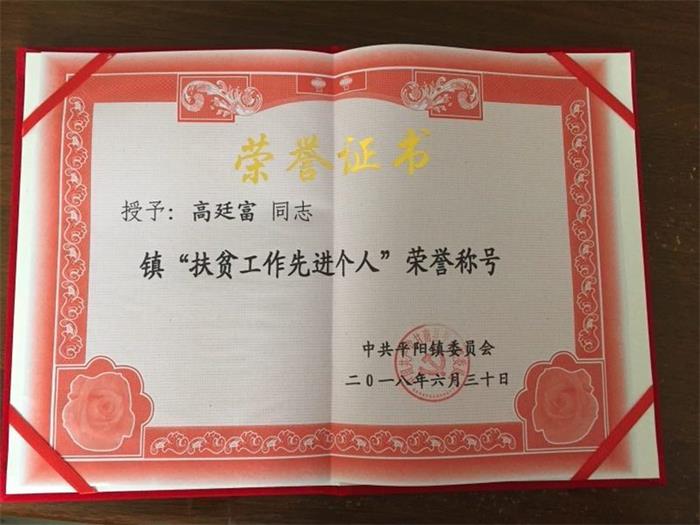 荣誉证书
授予：高廷富 同志
镇“扶贫工作先进个人”荣誉称号
中共平阳镇委员会
二〇一八年六月三十日